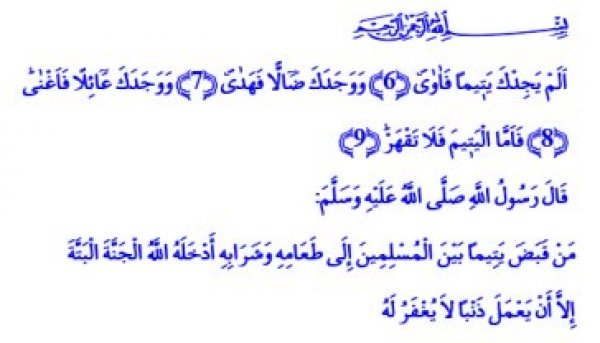 بِسْمِ اللّٰهِ الرَّحْمٰنِ الرَّحِيمِ
اَلَمْ يَجِدْكَ يَتِيمًا فَاٰوٰىۖ ﴿6﴾ وَوَجَدَكَ ضَٓالًّا فَهَدٰىۖ ﴿7﴾ وَوَجَدَكَ عَٓائِلًا فَاَغْنٰىۜ
﴿8﴾ فَاَمَّا الْيَتِيمَ فَلَا تَقْهَرْۜ ﴿9﴾
قَالَ رَسُولُ اللَّهِ صَلَّى اللَّهُ عَلَيْهِ وَسَلَّمَ:
مَنْ قَبَضَ يَتِيمًا بَيْنَ الْمُسْلِمِينَ إِلَى طَعَامِهِ وَشَرَابِهِ أَدْخَلَهُ اللَّهُ الْجَنَّةَ الْبَتَّةَ
إِلاَّ أَنْ يَعْمَلَ ذَنْبًا لاَ يُغْفَرُ لَهُ